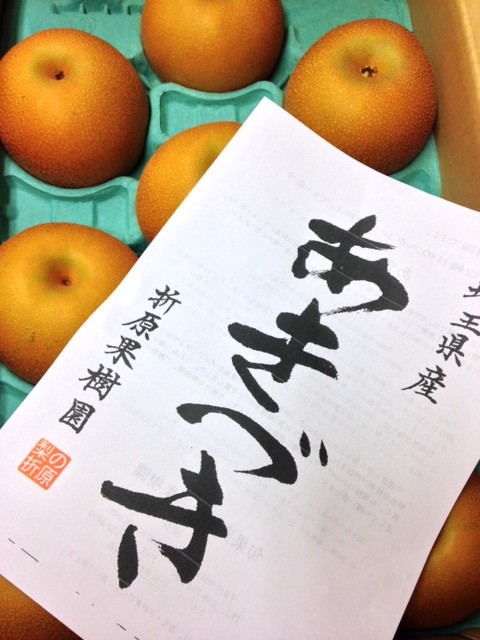 埼玉県産
あきづき
折原果樹園
梨の折原